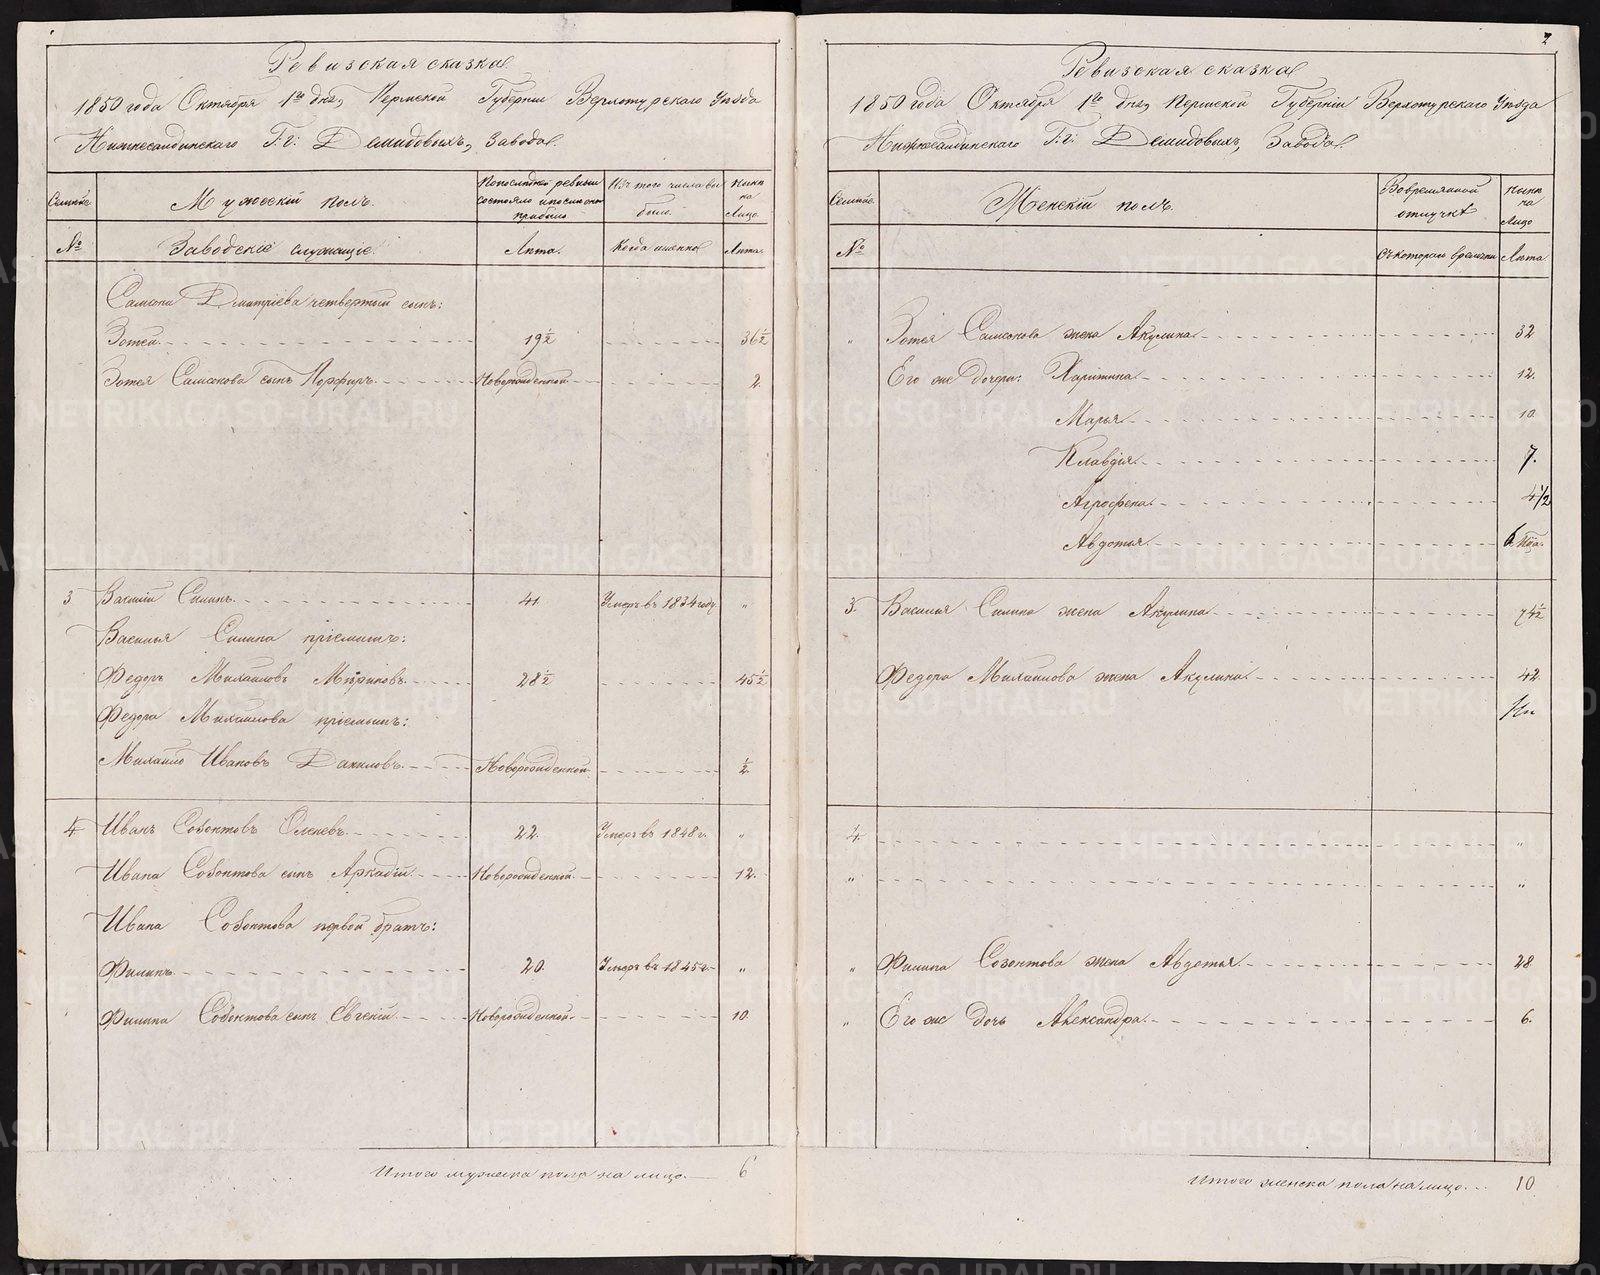 Ревизская сказка
1850 года Октября 1го дня, Пермской Губернии Верхотурскаго Уезда
Нижнесалдинскаго Г.г: Демидовыхъ, Завода.
Семьи
Мужескій полъ.
По последней ревизіи состояло и после оной прибыло
Изъ того числа выбыло.
Ныне на лицо
№
Заводскіе служащіе.
Лета.
Когда именно
Лета.
Самсона Дмитріева четвертый сынъ:
Зотей. 19½ 36½
Зотея Самсонова сынъ Порфиръ. Новорожденной 2.
3 Василій Силинъ. 41. Умеръ въ 1834 году „
Василья Силина пріемышъ:
Федоръ Михаиловъ Мариновъ. 28½ 45½
Федора Михаилова пріемышъ:
Михаило Ивановъ Даниловъ. Новорожденной ½.
4 Иванъ Созонтовъ 22. Умеръ въ 1848 г. „
Ивана Созонтова сынъ Аркадій. Новорожденной. 12.
Ивана Созонтова первой братъ:
Филипъ. 20. Умеръ въ 1845 г. „
Филипа Созонтова сынъ Евгеній. Новорожденной. 10.
Итого мужеска пола на лицо. 6
2
Ревизская сказка
1850 года Октября 1го дня, Пермской Губерніи Верхотурскаго Уезда
Нижнесалдинскаго Г.г: Демидовыхъ, Завода.
Семьи
Женскій полъ.
Во временной отлучке
Ныне на лицо
№
Съ котораго времени
Лета
„ Зотея Самсонова жена Акулина. 32
Его же дочери: Харитина. 12.
Марья. 10
Клавдія. 7.
Агрофена. 4½
Авдотья. 6 
3. Василья Силина жена Акулина. 74½
Федора Михаилова жена Акулина. 42.
4. „
„ „
„ Филипа Созонтова жена Авдотья. 28
„ Его же дочь Александра. 6.
Итого женска пола на лицо. 10
METRIKI.GASO-URAL.RU